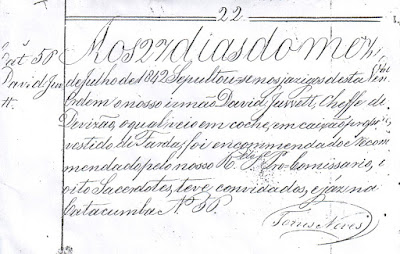 22
Cat. 58
David Jen
tt.
Aos 27 dias do mez
de julho de 1842 Sepultou-se nos jazigos desta Ven.
Ordem o nosso irmão David Jewett, Cheffe de
Divizão, o qual veio em coche, em caixão proprio,
vestido de Farda, foi encommendado e recom
mendado pelo nosso R. P. Pro-Comissario, e
oito Sacerdotes, teve convidados, e jáz na
Catacumba Nº 58.
Torres Neves